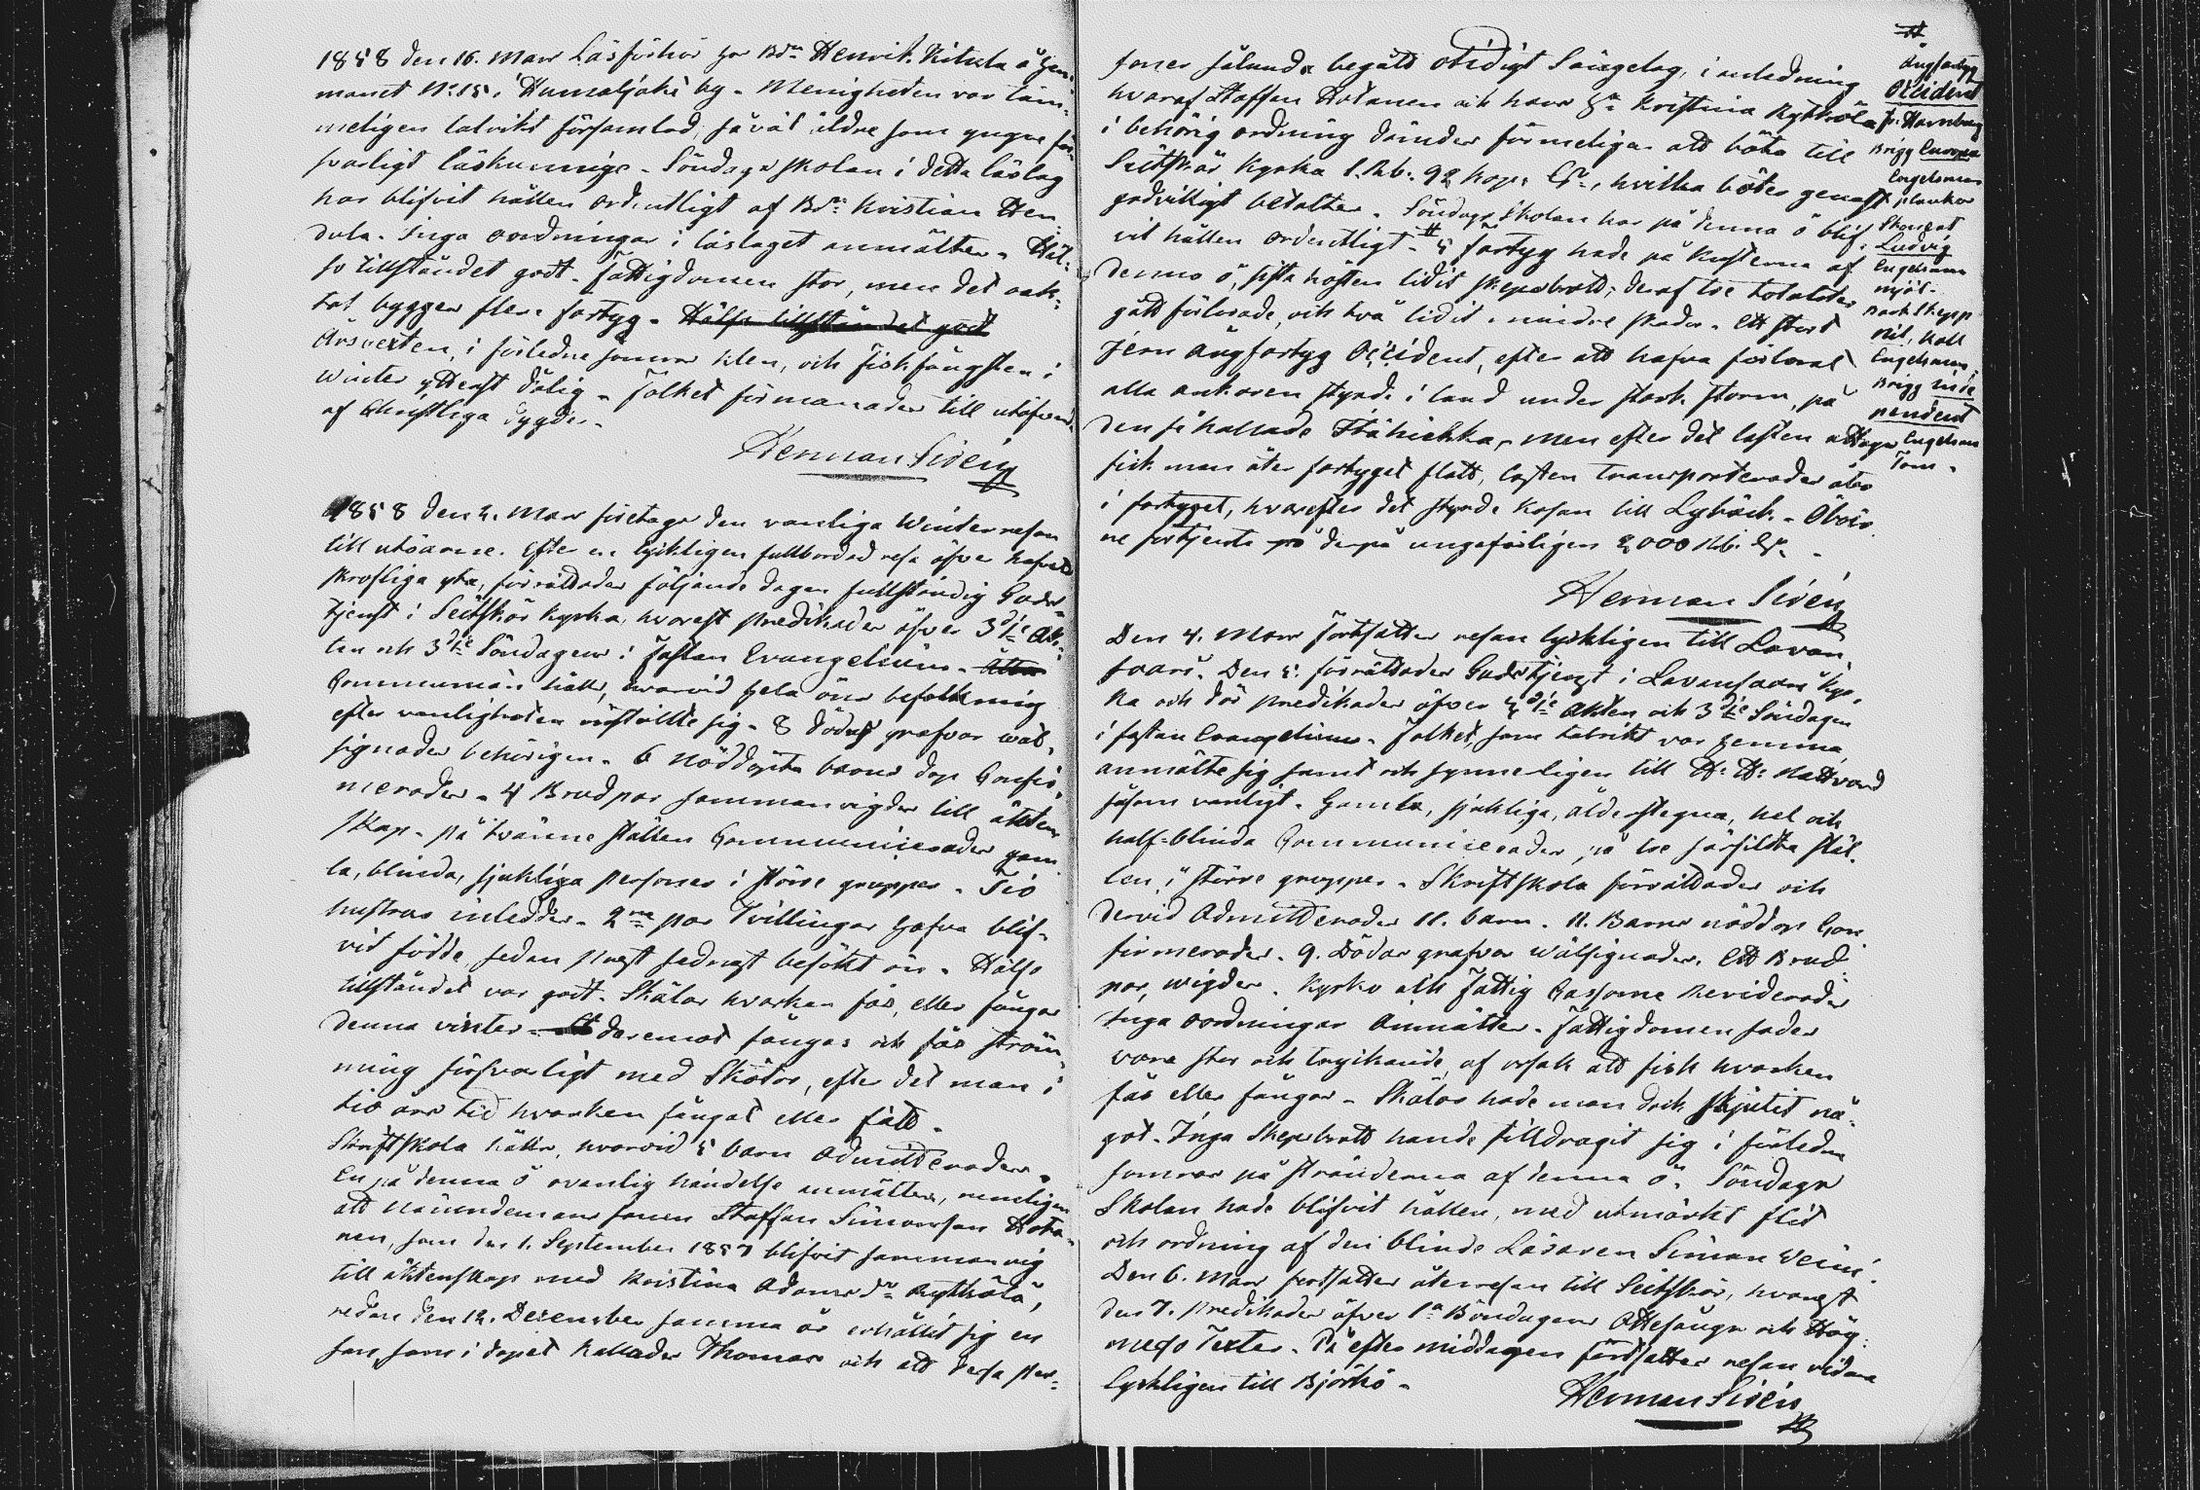 1858 den 16. Mars Läsförhör hos Bdn Henrik Kitula å Hem-
manet No 15. i Humaljoki by. Menigheten var täm-
meligen talrikt församlad, såväl äldre som yngre för-
svarligt läskunnige. Söndagsskolan i detta läslag
har blifvit hållen ordentligt af Bdn Kristian Hen-
dola. Inga oordningar i läslaget anmältes. Häl-
so tillståndet godt. Fattigdomen stor, men det oak-
tat bygges flere fartyg. Hälso tillståndet godt
Årsvexten, i förledne sommar klen, och fiskfångsten i
Winter ytterst dålig. Folket förmanades till utöfvand
af Christliga dygder.
Herman Sirén
1858 den 2. Mars företogs den vanliga Winterresan
till utöarne. Efter en lyckligen fullbordad resa öfver hafvets
skrofliga yta, förrättades följande dagen fullständig Guds-
tjenst i Seitskär kyrka, hvarest predikades öfver 3dje Ak-
ten och 3dje Söndagens i Fastan Evangelium.
Communion hölls, hvarvid hela öns befolkning
efter vanligheten instälte sig. 8 dödas grafvar wäl-
signades behörigen. 6 nöddöpta barns dop Confir-
merades. 4 Brudpar sammanvigdes till äkten-
skap. På tvänne ställen Communicerades gam-
la, blinda, sjukliga personer i större grupper. Tio
hustrur inleddes. 2ne par Tvillingar hafva blif-
vit födde, sedan prest sednast besökt ön. Hälso
tillståndet var godt. Skälar hvarken fås, eller fångas
denna vinter. deremot fångas och fås ström-
ming försvarligt med Skötar, efter det man i
tio års tid hvarken fångat eller fått.
Skriftskola hölls, hvarvid 5 barn admitterades.
En på denna ö ovanlig händelse anmältes, nemligen
att Nämndemans sonen Staffan Simonsson Hota-
nen, som den 1. September 1857 blifvit sammanvig
till äktenskap med Kristina Adamsdr Kyttölä,
redan den 12. December samma år erhållit sig en
son, som i dopet kallades Thomas och att dessa per-
soner sålunda begått otidigt Sängelag, i anledning
hvaraf Staffan Hotanen och hans Hu Kristina Kyttölä
i behörig ordning dömdes förmeligen att böta till
Seitskär Kyrka 1. Rb. 92 kop. Sr., hvilka böter genast
godvilligt betaltes. Söndags Skolan har på denna ö blif-
vit hållen ordentligt. # 5 fartyg hade på kusterna af
denna ö, sista hösten lidit skeppsbrott; deraf tre totaliter
gått förlorade, och två lidit mindre skada. Ett stort
jern ångfartyg Occident, efter att hafva förlorat
alla ankaren styrde i land under stark storm, på
den så kallade, men efter det lasten uttagits
fick man åter fartyget flott, lasten transporterades åter
i fartyget, hvarefter det styrde kosan till Lybäck. Öboar-
ne förtjente derpå ungefärligen 2000 Rb. Sr.
Herman Sirén
#
Ångfartyg
Occident
fr. Hamburg
Brigg Europa
Engelsman
plankor
Skonert
Ludvig
Engelsman
mjöl.
Barkskepp
Nil, kall
Engelsman,
Brigg Inde
pendent
Engelsman
Tom.
Den 4. Mars fortsattes resan lyckligen till Lavan-
saari. Den 5. förrättades Gudstjenst i Lavansaari kyr-
ka och der predikades öfver 4de Akten och 3dje Söndagens
i fastan Evangelium. Folket, som talrikt var hemma
anmälte sig samt och synnerligen till H. H. Nattvard
såsom vanligt. Gamla, sjukliga, ålderstegna, hel och
half-blinda Communicerades på tre särskilta stäl-
len, i större grupper. Skriftskola förrättades och
dervid admitterades 11. barn. 11. Barns nöddop Con-
firmerades. 9. Dödas grafvar wälsignades. Ett Brud-
par, wigdes. Kyrko och Fattig Cassorne Reviderades
Inga oordningar Anmältes. Fattigdomen sades
vara stor och tryckande, af orsak att fisk hvarken
fås eller fångas. Skälar hade man dock skjutit nå-
got. Inga Skeppsbrott hade tilldragit sig i förledne
sommar på stränderna af denna ö. Söndags
Skolan hade blifvit hållen, med utmärkt flit
och ordning af den blinde Läsaren Simon Weini.
Den 6. Mars fortsattes återresan till Seitskär, hvarest
den 7. predikades öfver 1a Böndagens Ottesångs och Hög-
messo Texter. På efter middagen fortsattes resan vidare
lyckligen till Björkö.
Herman Sirén